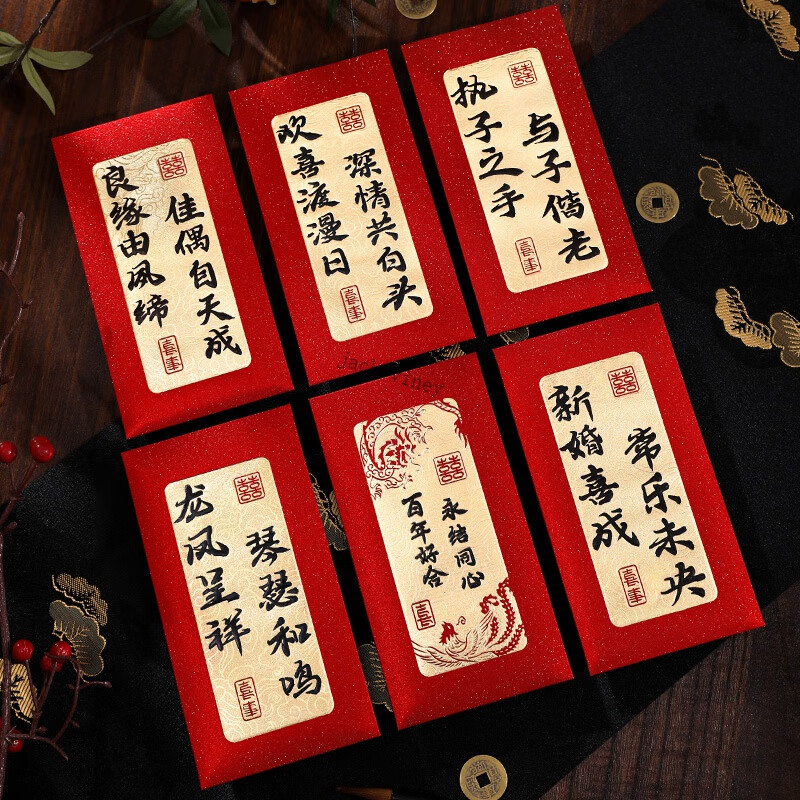 囍
良缘由夙缔
佳偶自天成
喜事
囍
欢喜渡漫日
深情共白头
喜事
囍
执子之手
与子偕老
喜事
囍
龙凤呈祥
琴瑟和鸣
喜事
囍
百年好合
永结同心
囍
新婚喜成
常乐未央
喜事